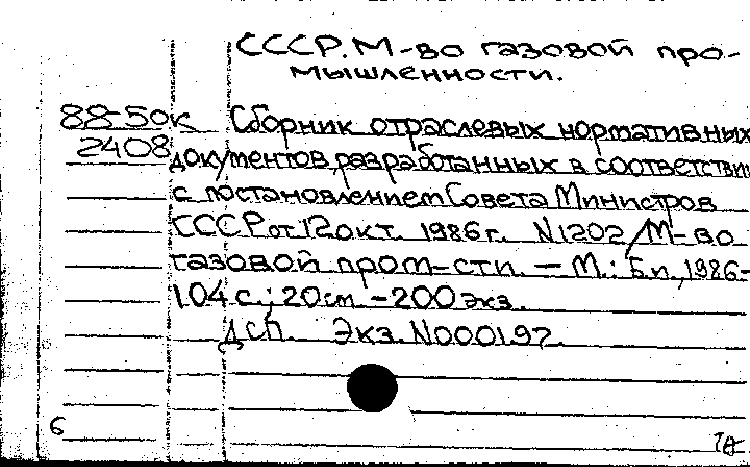 СССР. М-во газовой про-
мышленности.
88-50к Сборник отраслевых нормативных
2408 документов, разработанных в соответствии
с постановлением Совета Министров
СССР от 12 окт. 1986 г. N1202 / М-во
газовой пром-сти. — М.: Б.и., 1986-
104 с.; 20 см. - 200 экз.
ДСП. Экз. N000197.
6